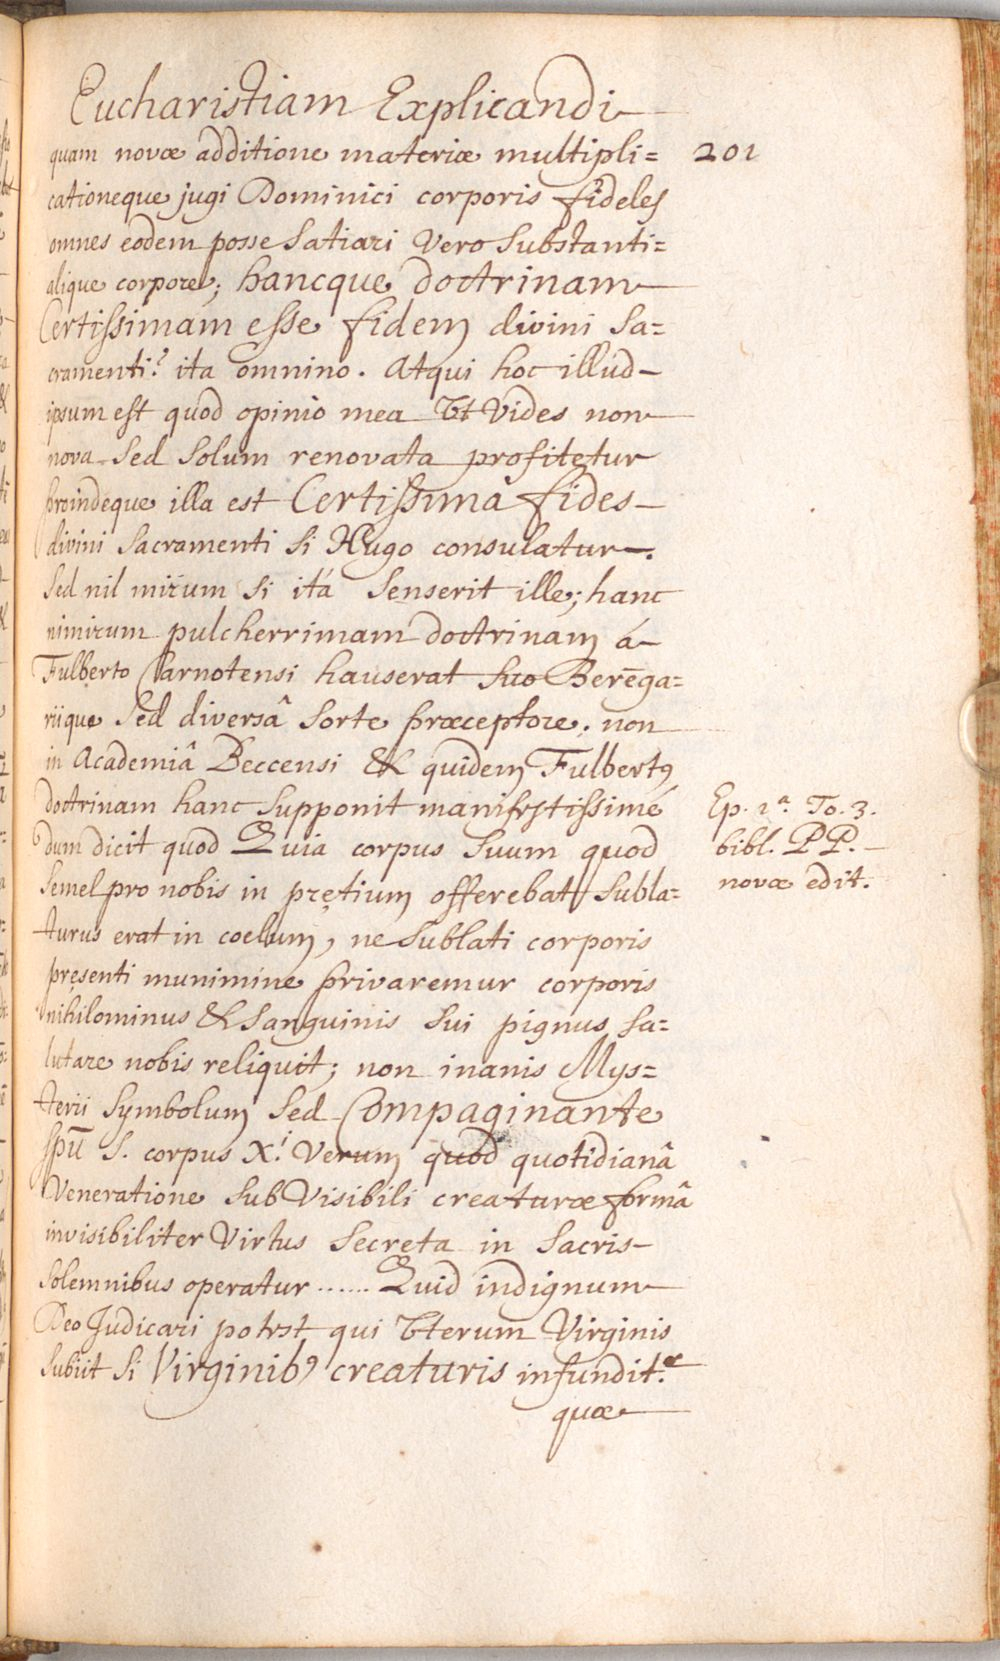 Eucharistiam Explicandi
quam novæ additione materiæ multipli= 201
cationeque jugi Dominici corporis fideles
omnes eodem posse Satiari Vero Substanti=
alique corpore; hancque doctrinam
Certissimam esse fidem divini Sa=
cramenti? ita omnino. Atqui hoc illud
ipsum est quod opinio mea Ut Vides non
nova Sed Solum renovata profitetur
proindeque illa est Certissima fides
divini Sacramenti Si Hugo consulatur.
Sed nil mirum Si itá Senserit ille; hanc
nimirum pulcherrimam doctrinam á
Fulberto Carnotensi hauserat Suo Berēga=
riique Sed diversâ Sorte præceptore. non
in Academiâ Beccensi & quidem Fulbertꝰ
doctrinam hanc Supponit manifestissimé
dum dicit quod Quia corpus Suum quod
Semel pro nobis in prętium offerebat Subla=
turus erat in coelum, ne Sublati corporis
pręsenti munimine privaremur corporis
nihilominus & Sanguinis Sui pignus Sa=
lutare nobis reliquit; non inanis Mys=
terii Symbolum Sed Compaginante
Spū S. corpus Xi. Verum quod quotidianâ
Veneratione Sub Visibili creaturæ formâ
invisibiliter Virtus Secreta in Sacris
Solemnibus operatur ...... Quid indignum
Deo Judicari potest qui Uterum Virginis
Subiit Si Virginibꝰ creaturis infundit.r
quæ
Ep. 1a. To. 3.
bibl. PP.
novæ edit.